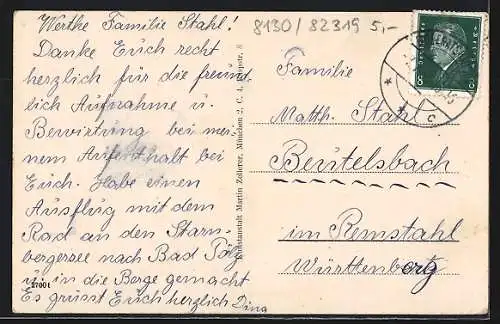 Werthe Familie Stahl!
Danke Euch recht
herzlich für die freund-
lich Aufnahme u.
Bewirtung bei mei-
nem Aufenthalt bei
Euch. Habe einen
Ausflug mit dem
Rad an den Starn-
bergersee nach Bad Tölz
u. in die Berge gemacht
Es grüsst Euch herzlich Dina
27001
Kunstanstalt Martin Zöllerer, München 2. C. 4, 8
8130/82319 5,-
Familie
Matth. Stahl
Beutelsbach
im Remstahl
Württenberg
8 8
c